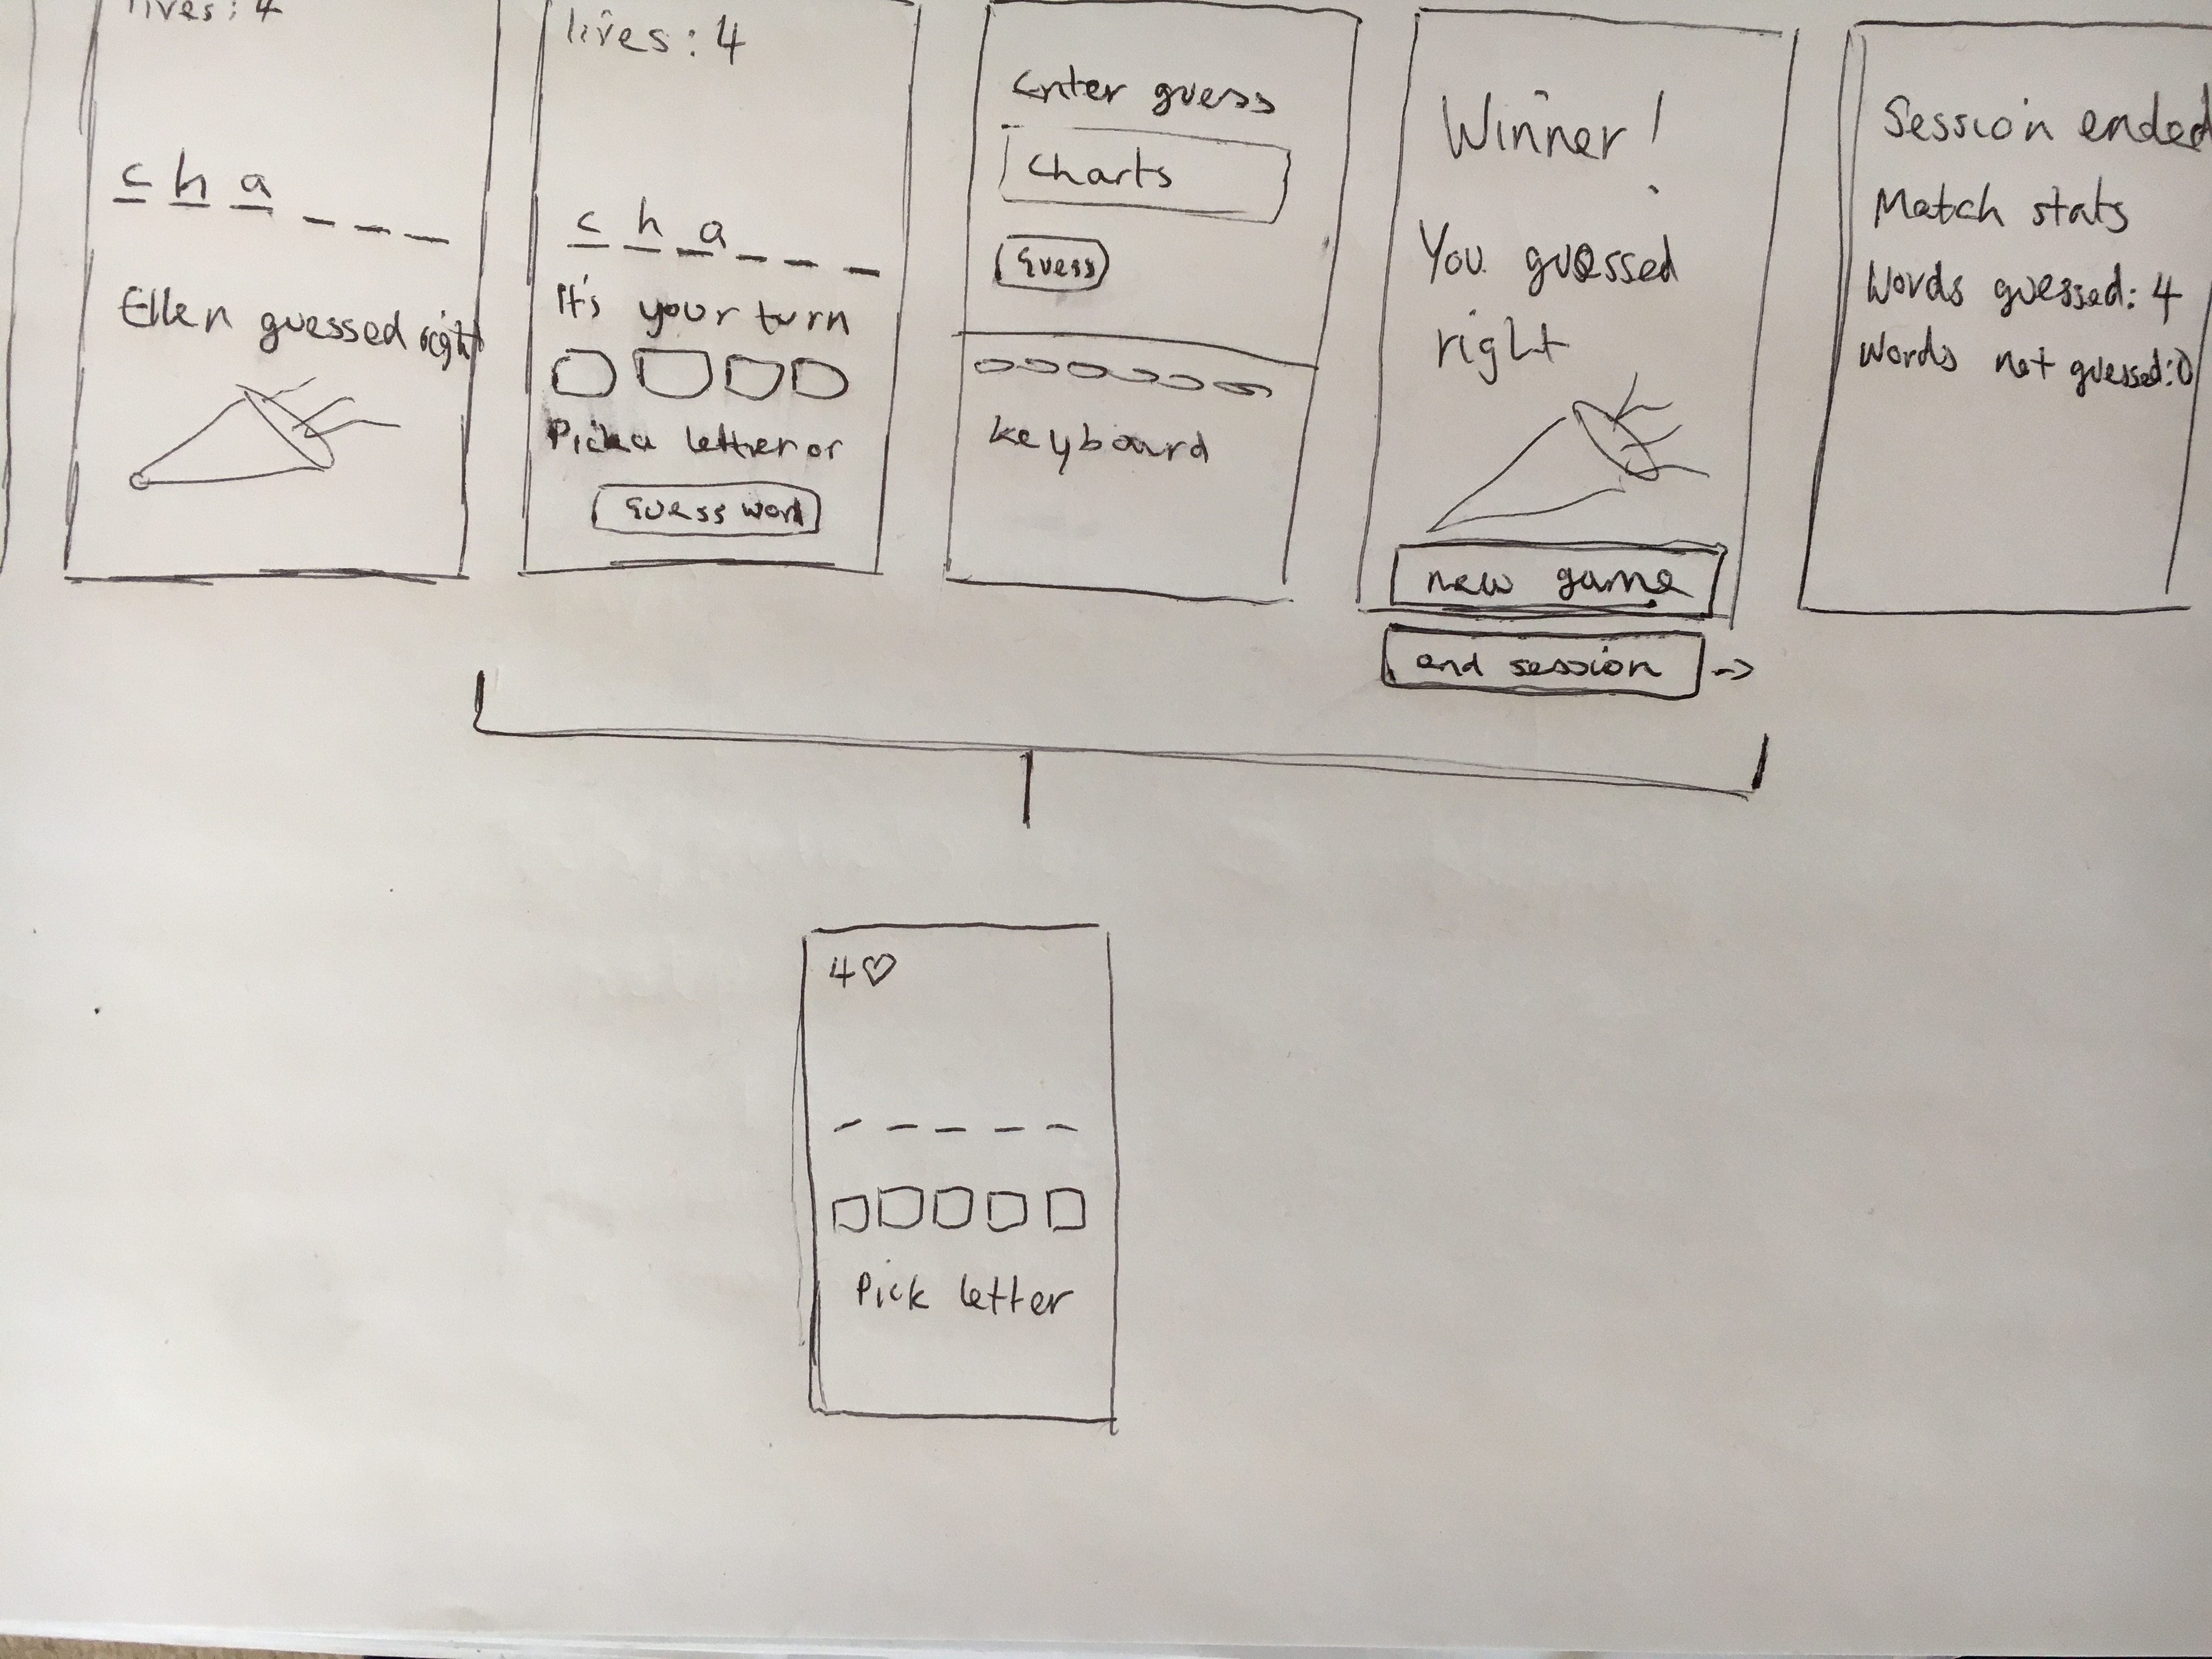 lives: 4
c h a _ _ _
Ellen guessed right
lives: 4
c h a _ _ _
It's your turn
Pick a letter or
Guess word
Enter guess
Charts
Guess
keyboard
Winner!
You guessed
right
new game
end session ->
Session ended
Match stats
Words guessed: 4
Words not guessed: 0
4♡
_ _ _ _ _
Pick letter